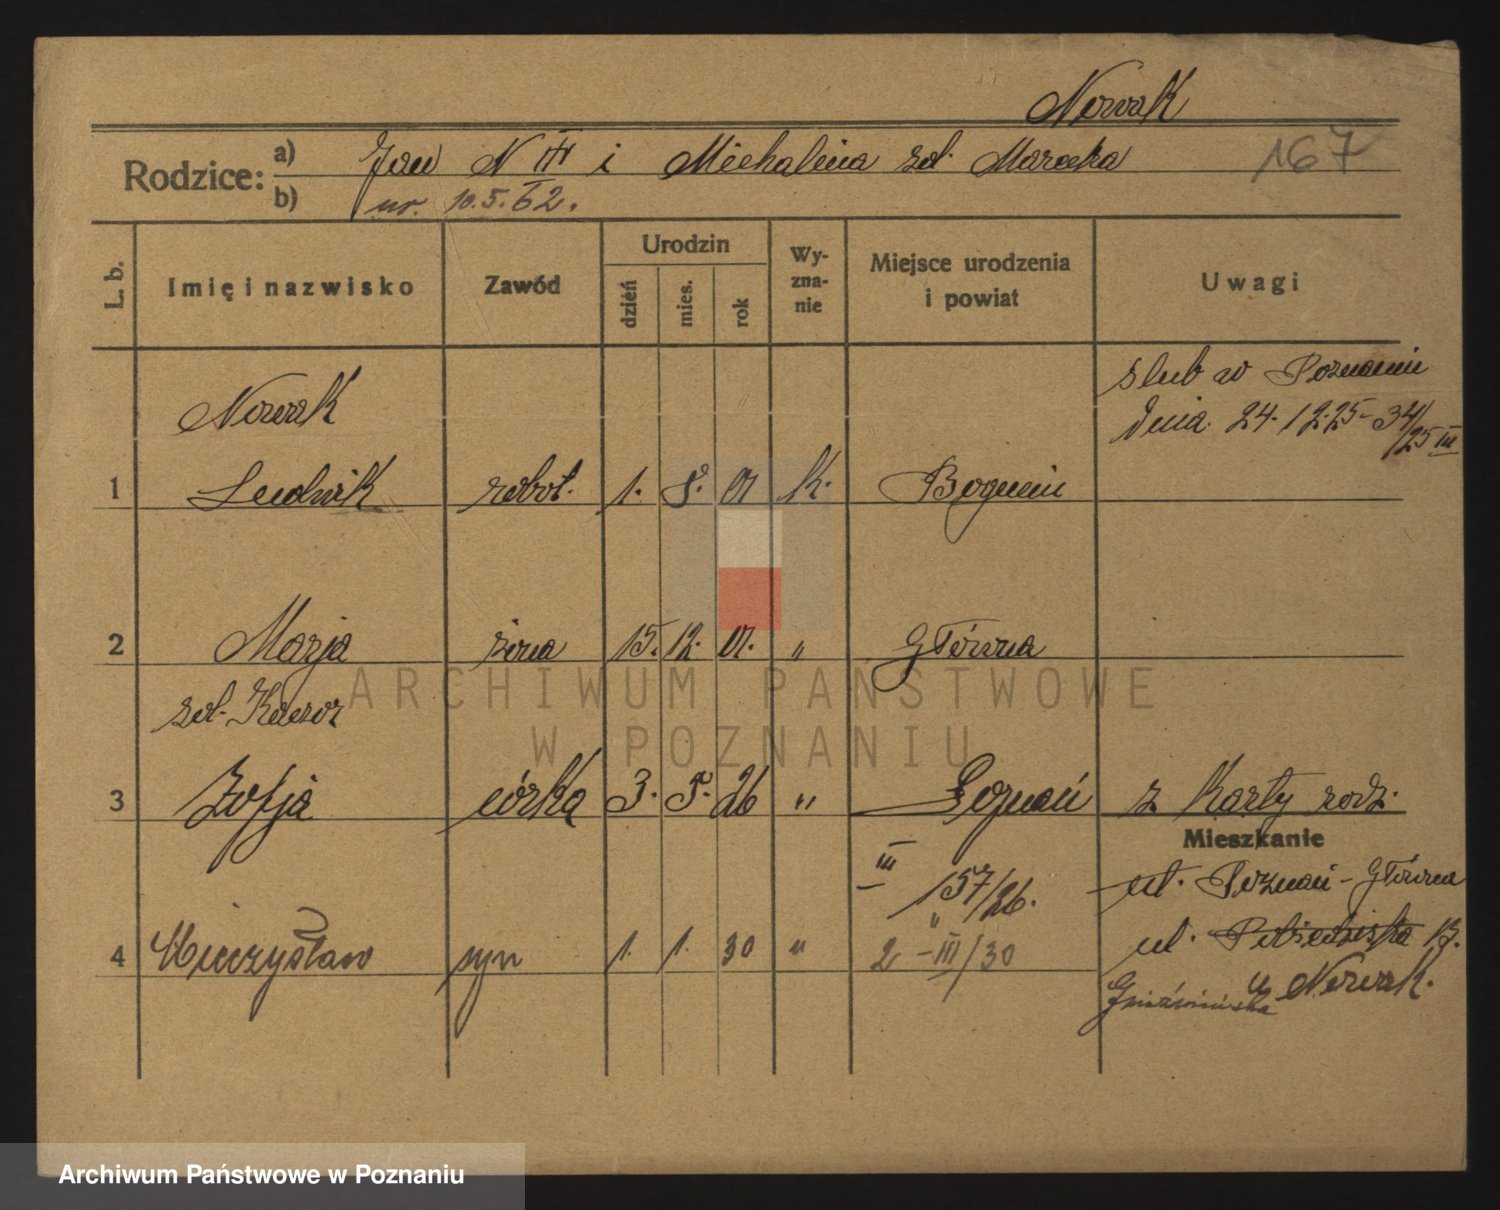 Nowak
Rodzice: a) Jan N III i Michalina zd. Marecka 167
b) ur. 10.5.62.
L. b. Imię i nazwisko Zawód Urodzin dzień mies. rok Wyznanie Miejsce urodzenia i powiat Uwagi
ślub w Poznaniu
dnia 24.12.25 - 34/25 III
Nowak
1 Ludwik robot. 1. 8. 01 k. Bogucin
2 Marja żona 15. 12. 01. „ Główna
zd. Kaczor
ARCHIWUM PAŃSTWOWE
W POZNANIU
3 Zofja córka 3. 5. 26 „ Poznań z Karty rodz.
Mieszkanie
III 157/26. ul. Poznań - Główna
4 Mieczysław syn 1. 1. 30 „ „ 2 - III/30 ul. 13.
Gnieźnieńska u Nowak.
Archiwum Państwowe w Poznaniu